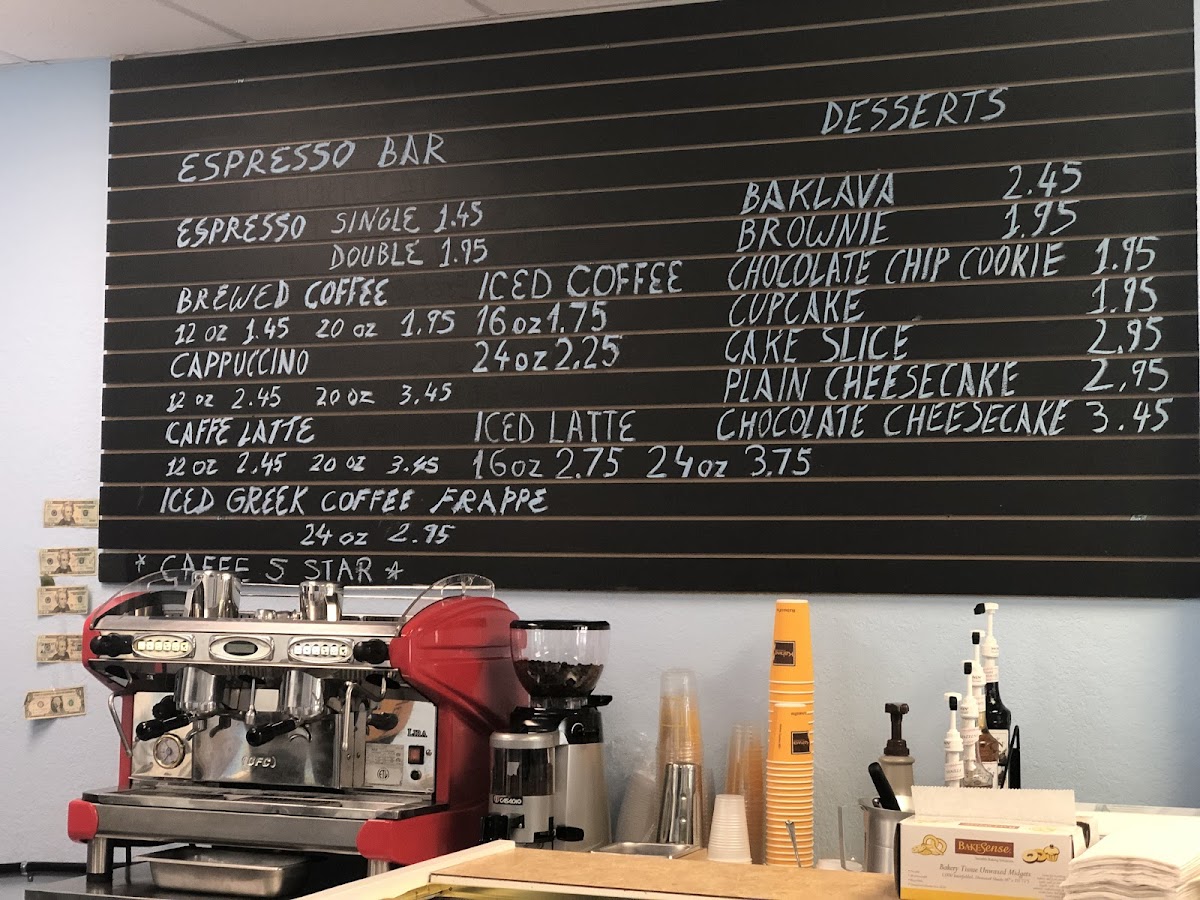 ESPRESSO BAR
ESPRESSO SINGLE 1.45
DOUBLE 1.95
BREWED COFFEE
12 oz 1.45 20 oz 1.95
CAPPUCCINO
12 oz 2.45 20 oz 3.45
CAFFE LATTE
12 oz 2.45 20 oz 3.45
ICED GREEK COFFEE FRAPPE
24 oz 2.95
* CAFFE 5 STAR *
ICED COFFEE
16 oz 1.75
24 oz 2.25
ICED LATTE
16 oz 2.75 24 oz 3.75
DESSERTS
BAKLAVA 2.45
BROWNIE 1.95
CHOCOLATE CHIP COOKIE 1.95
CUPCAKE 1.95
CAKE SLICE 2.95
PLAIN CHEESECAKE 2.95
CHOCOLATE CHEESECAKE 3.45
LIRA
BFC
CASADIO
BAKESENSE
Bakery Tissue Unwaxed Midgets